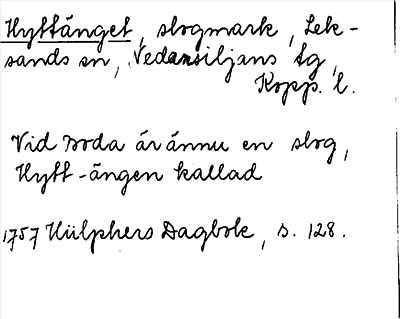 Hyttänget, slogmark, Lek-
sands sn, Nedansiljans fg,
Kopp. l.
Vid Boda är ännu en slog,
Hytt-ängen kallad
1757 Hülphers Dagbok, s. 128.